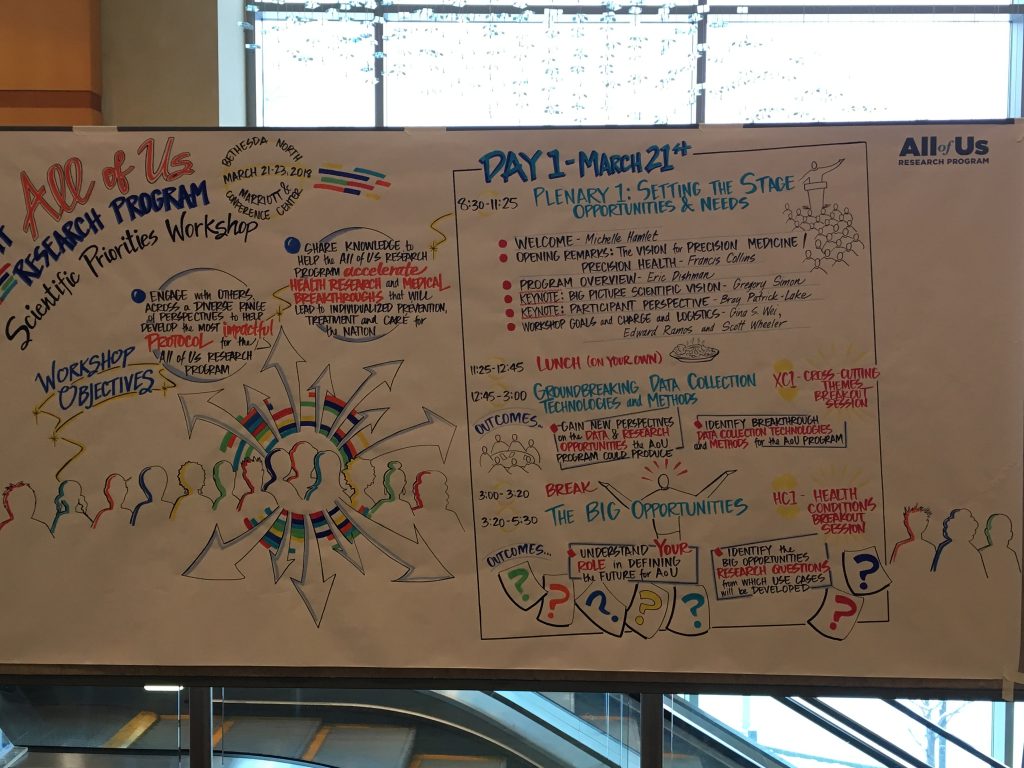 All of Us
RESEARCH PROGRAM
Scientific Priorities Workshop
BETHESDA NORTH
MARCH 21-23, 2018
MARRIOTT &
CONFERENCE CENTER
ENGAGE with OTHERS
ACROSS a DIVERSE RANGE
of PERSPECTIVES to HELP
DEVELOP the MOST impactful
PROTOCOL for the
All of Us RESEARCH
PROGRAM
SHARE KNOWLEDGE to
HELP the All of Us RESEARCH
PROGRAM accelerate
HEALTH RESEARCH and MEDICAL
BREAKTHROUGHS that WILL
LEAD to INDIVIDUALIZED PREVENTION,
TREATMENT and CARE for
the NATION
WORKSHOP
OBJECTIVES
DAY 1 - MARCH 21st
8:30-11:25
PLENARY 1: SETTING THE STAGE
OPPORTUNITIES & NEEDS
WELCOME - Michelle Hamlet
OPENING REMARKS: The VISION for PRECISION MEDICINE /
PRECISION HEALTH - Francis Collins
PROGRAM OVERVIEW - Eric Dishman
KEYNOTE: BIG PICTURE SCIENTIFIC VISION - Gregory Simon
KEYNOTE: PARTICIPANT PERSPECTIVE - Bray Patrick-Lake
WORKSHOP GOALS and CHARGE and LOGISTICS - Gina S. Wei,
Edward Ramos and Scott Wheeler
11:25-12:45 LUNCH (ON YOUR OWN)
12:45-3:00 GROUNDBREAKING DATA COLLECTION
TECHNOLOGIES and METHODS
XC1 - CROSS-CUTTING
THEMES
BREAKOUT
SESSION
OUTCOMES...
GAIN NEW PERSPECTIVES
on the DATA & RESEARCH
OPPORTUNITIES the AoU
PROGRAM COULD PRODUCE
IDENTIFY BREAKTHROUGH
DATA COLLECTION TECHNOLOGIES
and METHODS for the AoU PROGRAM
3:00-3:20 BREAK
3:20-5:30 THE BIG OPPORTUNITIES
HC1 - HEALTH
CONDITIONS
BREAKOUT
SESSION
OUTCOMES...
UNDERSTAND YOUR
ROLE in DEFINING
the FUTURE for AoU
IDENTIFY the
BIG OPPORTUNITIES
RESEARCH QUESTIONS
from WHICH USE CASES
will be DEVELOPED
? ? ? ? ? ? ?
All of Us
RESEARCH PROGRAM